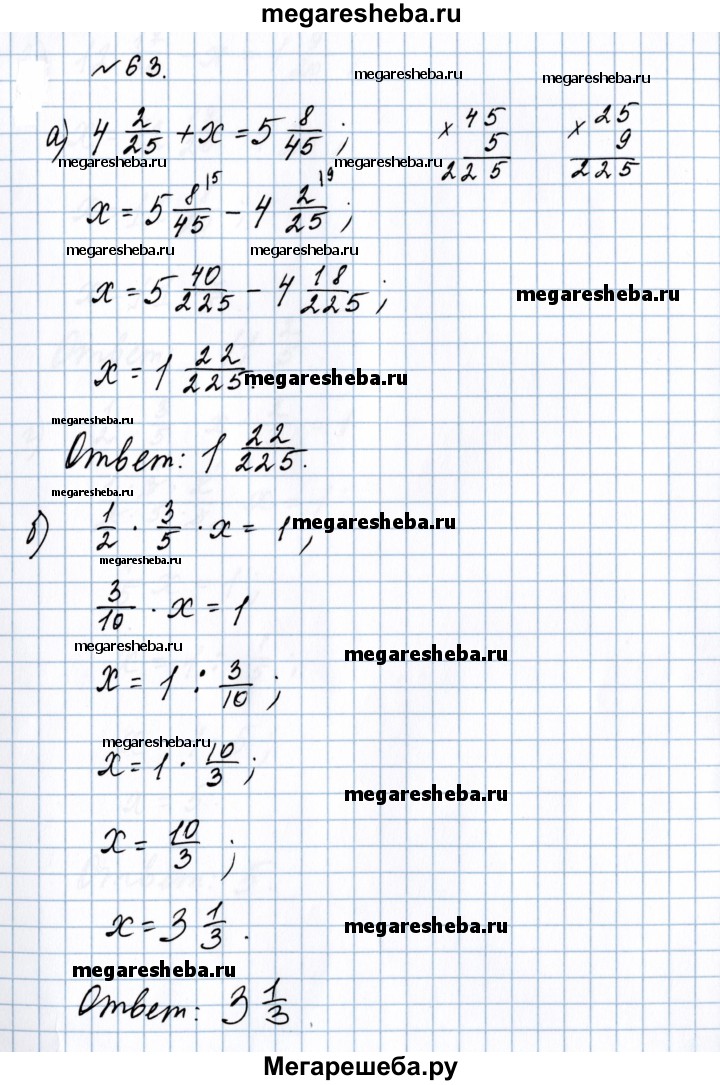 megaresheba.ru
№ 63.
megaresheba.ru megaresheba.ru
а) 4 2/25 + x = 5 8/45 ; × 45 × 25
5 9
225 225
megaresheba.ru megaresheba.ru
x = 5 8/45 |5 - 4 2/25 |9 ;
megaresheba.ru megaresheba.ru
x = 5 40/225 - 4 18/225 ; megaresheba.ru
x = 1 22/225. megaresheba.ru
megaresheba.ru
Ответ: 1 22/225.
megaresheba.ru
б) 1/2 · 3/5 · x = 1 ; megaresheba.ru
megaresheba.ru
3/10 · x = 1
megaresheba.ru megaresheba.ru
x = 1 : 3/10 ;
megaresheba.ru
x = 1 · 10/3 ;
megaresheba.ru
x = 10/3 ;
x = 3 1/3 . megaresheba.ru
megaresheba.ru
Ответ: 3 1/3
Мегарешеба.ру